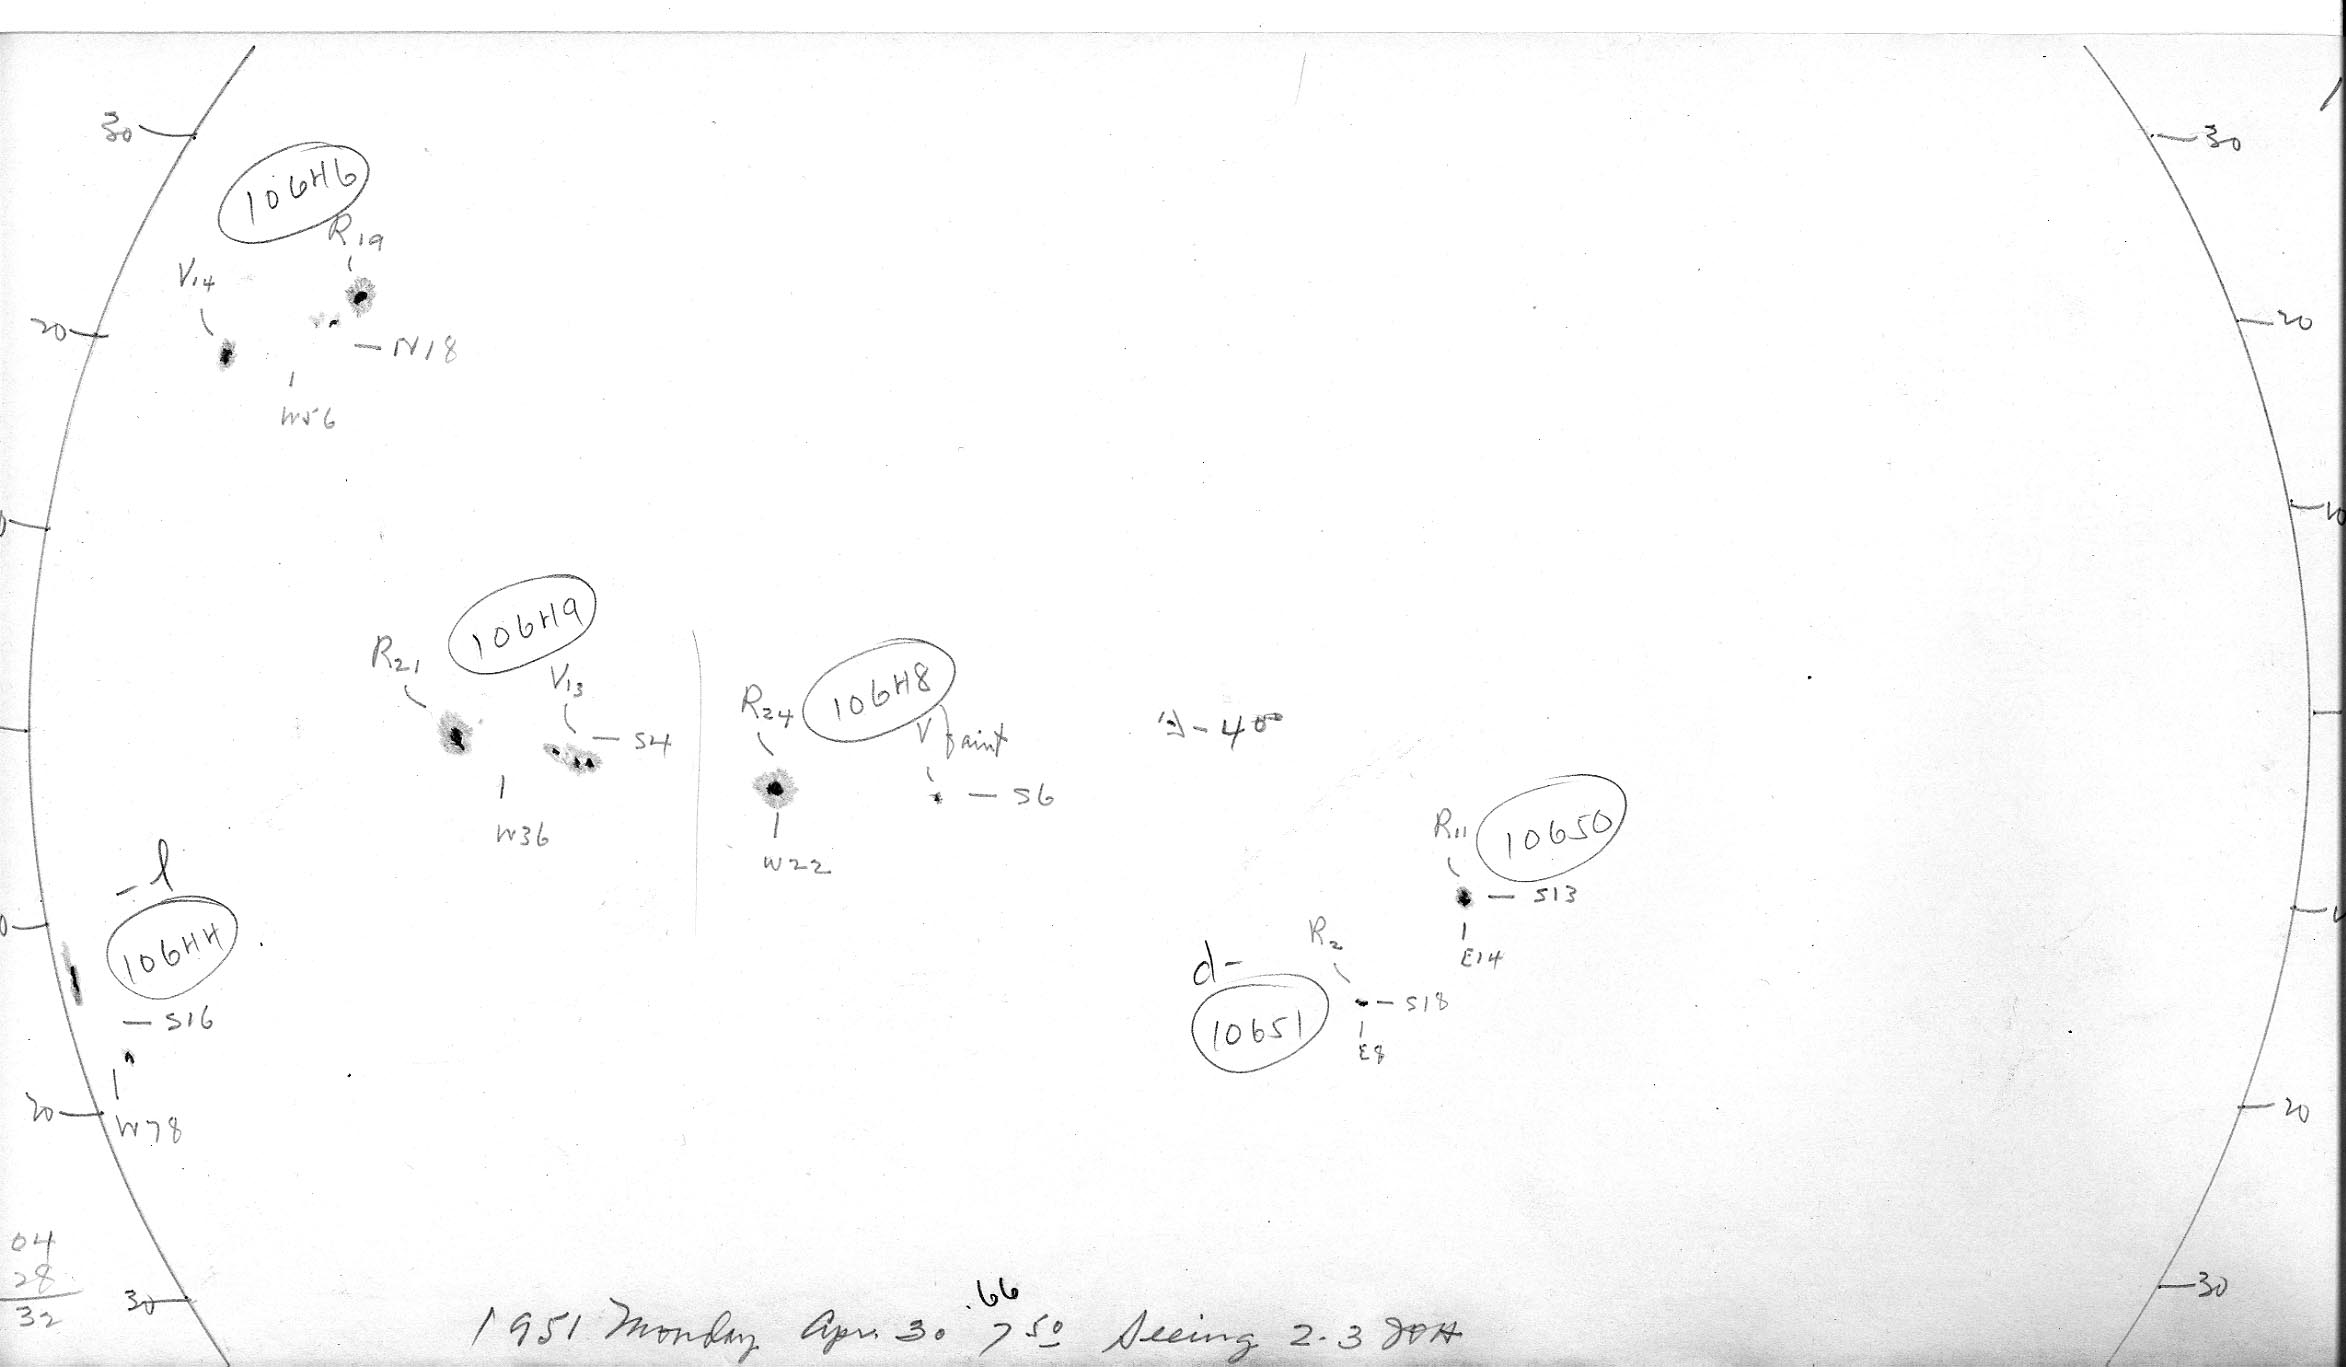 30
30
10646
R19
V14
20
20
N18
W56
0
10
10649
R21
V13
10648
R24
V faint
S4
S6
-4°
W36
W22
R11
10650
-l
S13
0
10644
R2
E14
d-
S16
S18
10651
E8
20
20
W78
04
28
32
30
30
.66
1951 Monday Apr. 30 7 50 Seeing 2-3 JOH